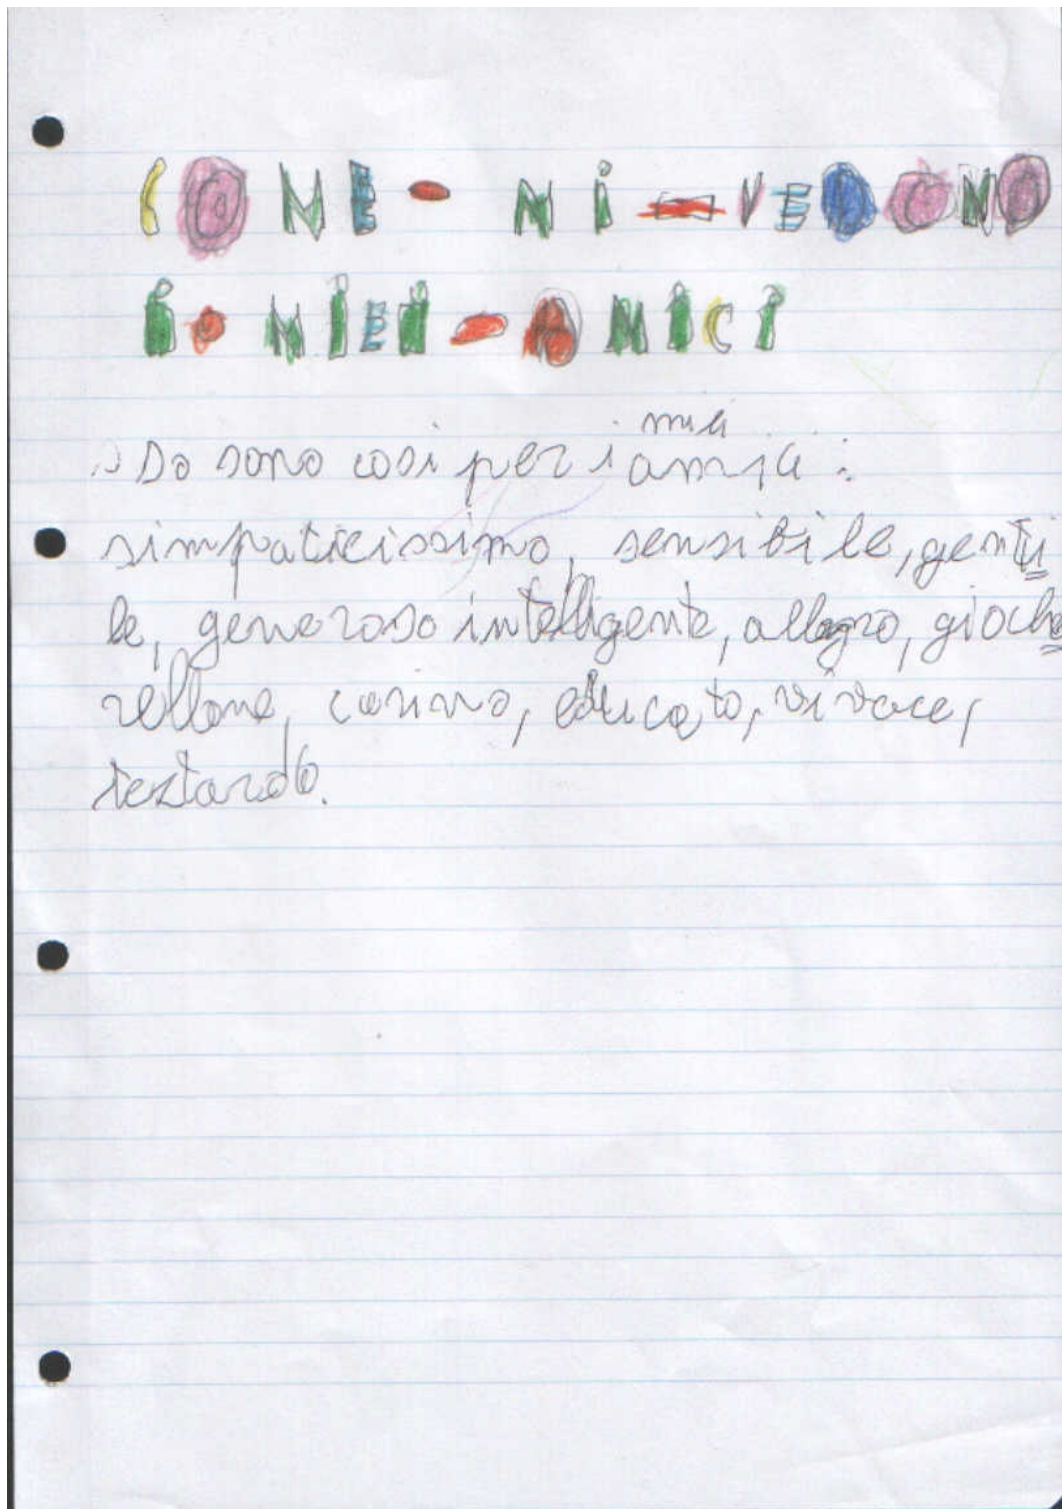 COME - MI - VEDONO
I - MIEI - AMICI
miei
Io sono così per i amici:
simpaticissimo, sensibile, genti
le, generoso intelligente, allegro, gioche
rellone, carino, educato, vivace,
testardo.